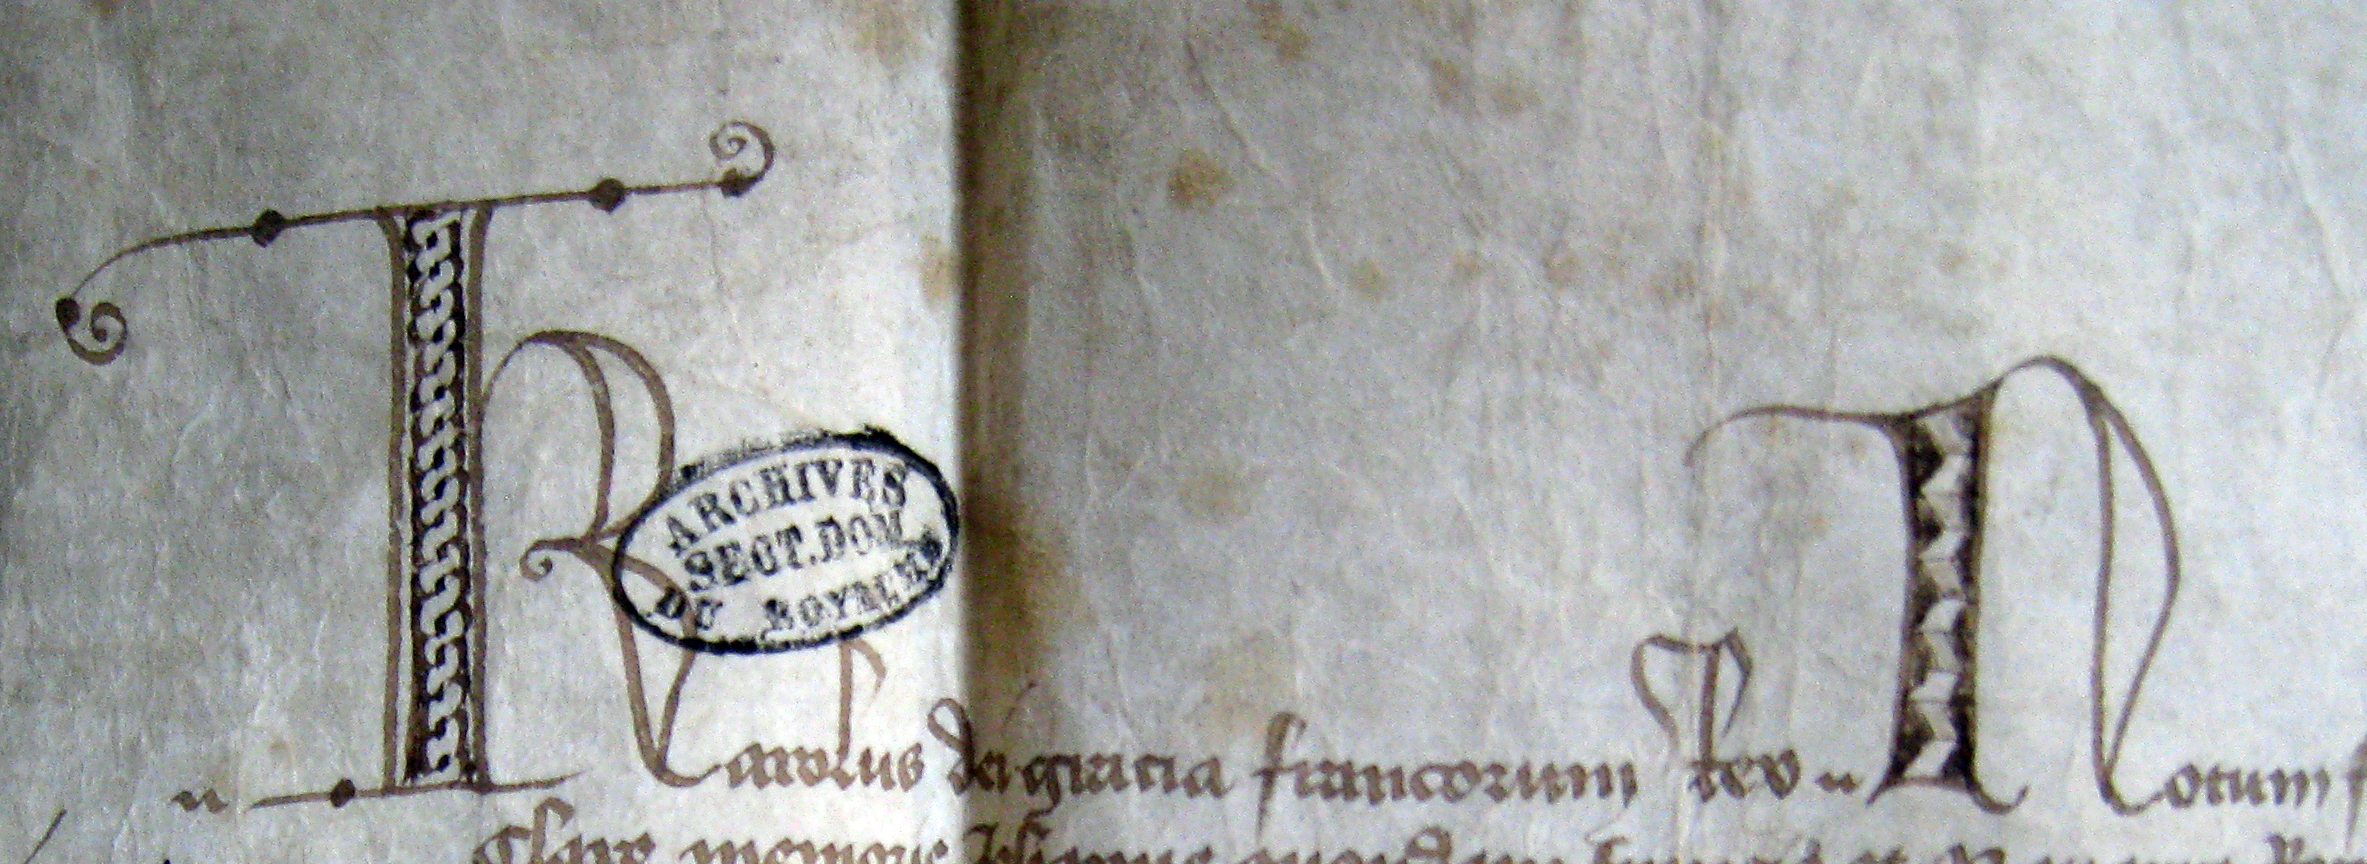 ARCHIVES
SECT. DOM
DU ROYAUME
Karolus dei gracia francorum Rex Notum
Clare memorie